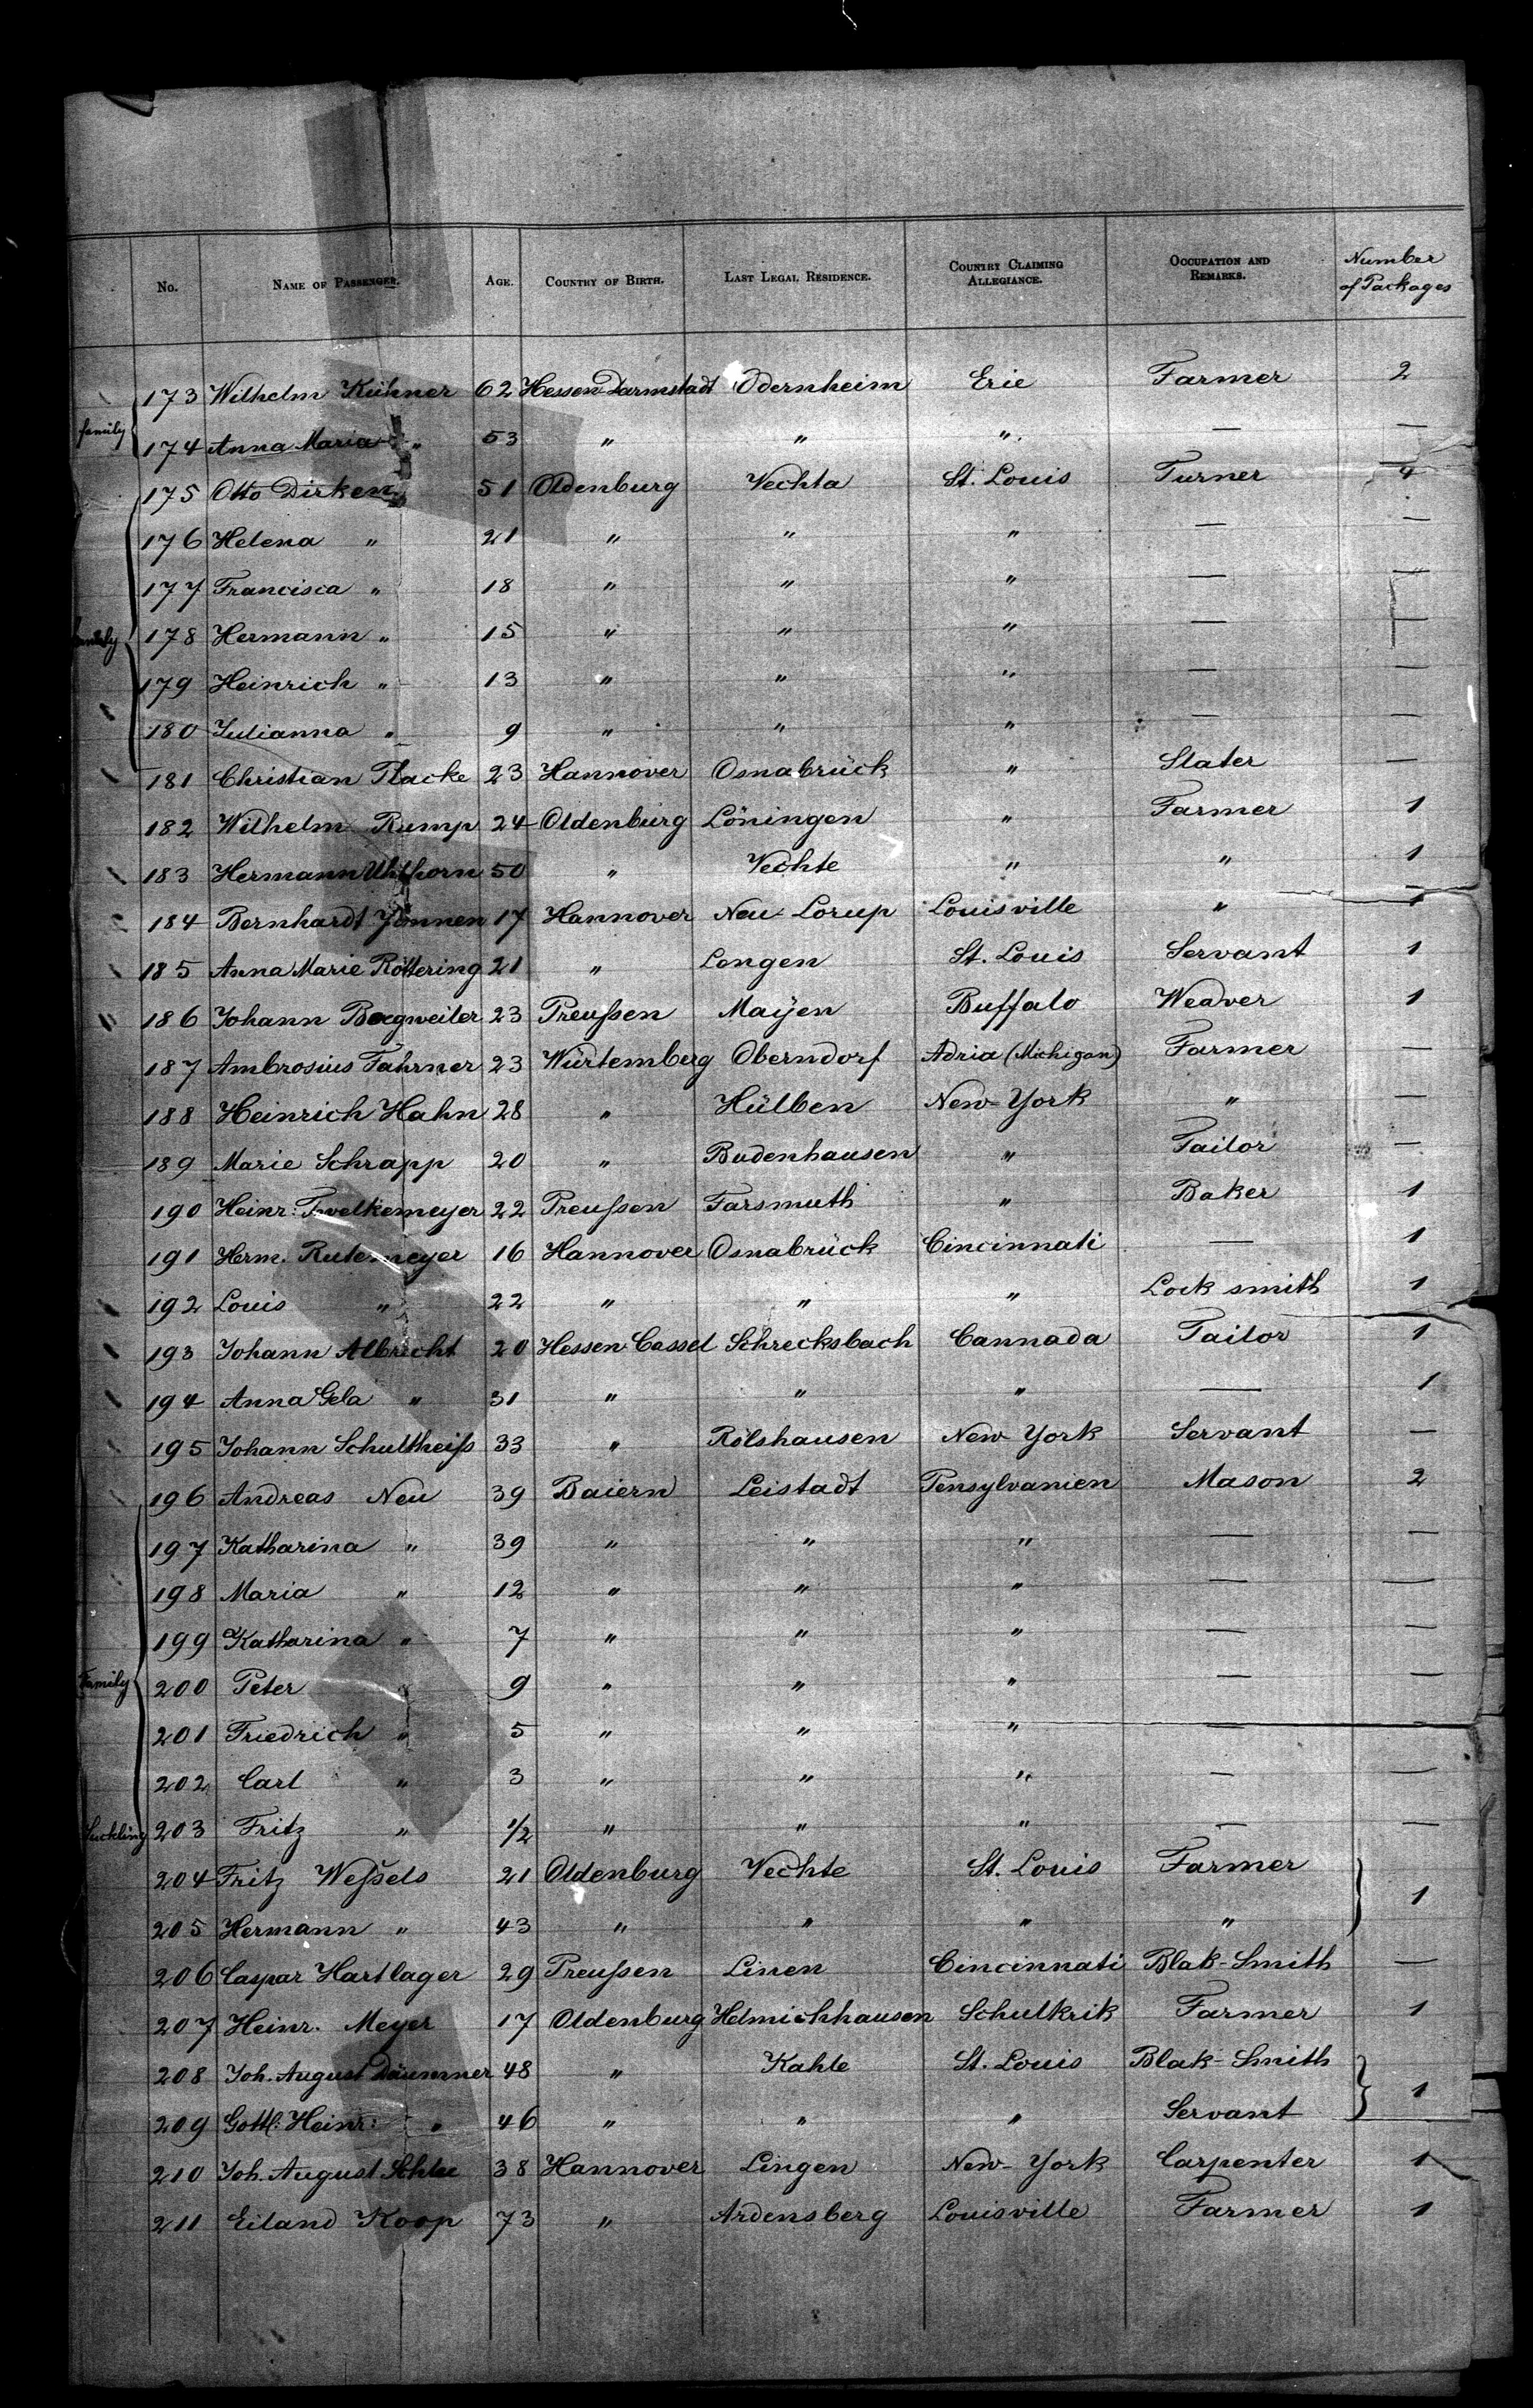 No. NAME OF PASSENGER. AGE. COUNTRY OF BIRTH. LAST LEGAL RESIDENCE. COUNTRY CLAIMING ALLEGIANCE. OCCUPATION AND REMARKS. Number of Packages
173 Wilhelm Kühner 62 Hessen-Darmstadt Odernheim Erie Farmer 2
family 174 Anna Maria " 53 " " " — —
175 Otto Dirken 51 Oldenburg Vechta St. Louis Turner 4
176 Helena " 21 " " " — —
177 Francisca " 18 " " " — —
family 178 Hermann " 15 " " " — —
179 Heinrich " 13 " " " — —
180 Julianna " 9 " " " — —
181 Christian Placke 23 Hannover Osnabrück " Slater —
182 Wilhelm Rump 24 Oldenburg Löningen " Farmer 1
183 Hermann Uhlhorn 50 " Vechte " " 1
184 Bernhardt 17 Hannover Neu Lorup Louisville " 1
185 Anna Marie Röttering 21 " Lengen St. Louis Servant 1
186 Johann Bergweiler 23 Preußen Mayen Buffalo Weaver 1
187 Ambrosius Fahrner 23 Würtemberg Oberndorf Adria (Michigan) Farmer —
188 Heinrich Hahn 28 " Hülben New-York " —
189 Marie Schrapp 20 " Budenhausen " Tailor —
190 Heinr: Twelkemeyer 22 Preußen Farsmuth " Baker 1
191 Herm. Rutemeyer 16 Hannover Osnabrück Cincinnati — 1
192 Louis " 22 " " " Lock smith 1
193 Johann Albrecht 20 Hessen Cassel Schrecksbach Cannada Tailor 1
194 Anna Gela " 31 " " " — 1
195 Johann Schultheiß 33 " Rölshausen New-York Servant —
196 Andreas Neu 39 Baiern Leistadt Pensylvanien Mason 2
197 Katharina " 39 " " " — —
198 Maria " 12 " " " — —
199 Katharina " 7 " " " — —
Family 200 Peter " 9 " " " — —
201 Friedrich " 5 " " " — —
202 Carl " 3 " " " — —
Suckling 203 Fritz " 1/2 " " " — —
204 Fritz Weßels 21 Oldenburg Vechte St. Louis Farmer 1
205 Hermann " 43 " " " "
206 Caspar Hartlager 29 Preußen Linen Cincinnati Blak-Smith —
207 Heinr. Meyer 17 Oldenburg Helmichhausen Schulkrik Farmer 1
208 Joh. August Däummer 48 " Kahle St. Louis Blak-Smith 1
209 Gottl: Heinr: " 46 " " " Servant
210 Joh. August Schlee 38 Hannover Lingen New-York Carpenter 1
211 Eiland Koop 73 " Ardensberg Louisville Farmer 1